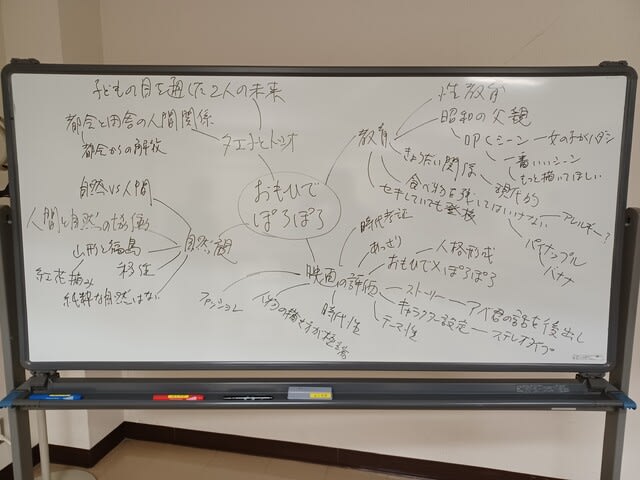 子どもの目を通した2人の未来
都会と田舎の人間関係
都会からの解放
タエ子とトシオ
おもひで
ぽろぽろ
教育
性教育
昭和の父親
叩くシーン
女の子がハダシ
一番いいシーン
もっと描いてほしい
きょうだい関係
現代的
食べ物を残してはいけない
アレルギー?
パイナップル
バナナ
セキしていても登校
自然観
自然vs人間
人間と自然の協働
山形と福島
紅花摘み
移住
純粋な自然はない
映画の評価
時代考証
あっさり
人格形成
おもひで×ぽろぽろ
ストーリー
アベ君の話を後出し
キャラクター設定
ステレオタイプ
テーマ性
時代性
ファッション